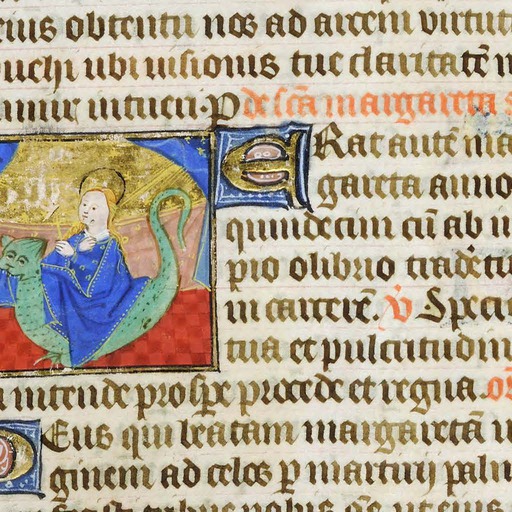 eius obtentu nos ad arcem virtut
uchi ubi visionis tue claritatē
intueri. P de scā margareta
Erat autē ma
gareta anno
quindecim cū ab
pio olibrio tradet
in carcerē. v̄ Specie
tua et pulcritudin
intende prospe procede et regna. or
Deus qui beatam margaretā
ginem ad celos p martirij palm
nobis